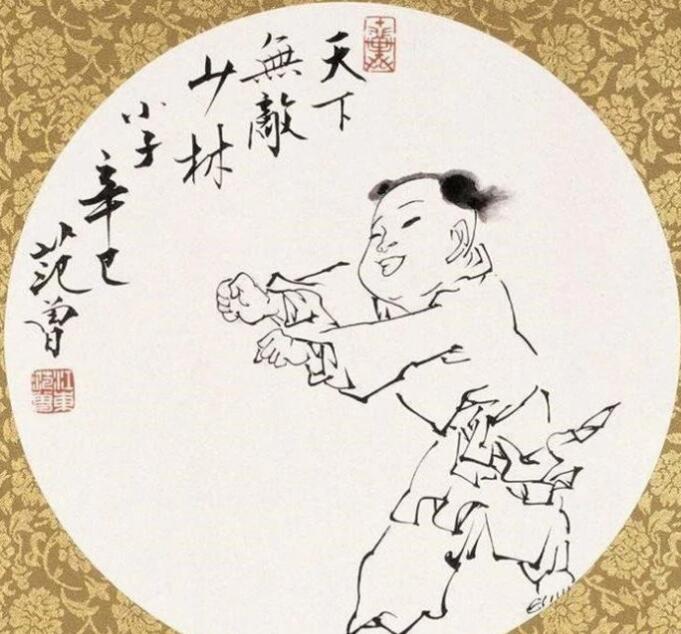 天下
無敵
少林
小子
辛巳
范曾
江東
范曾